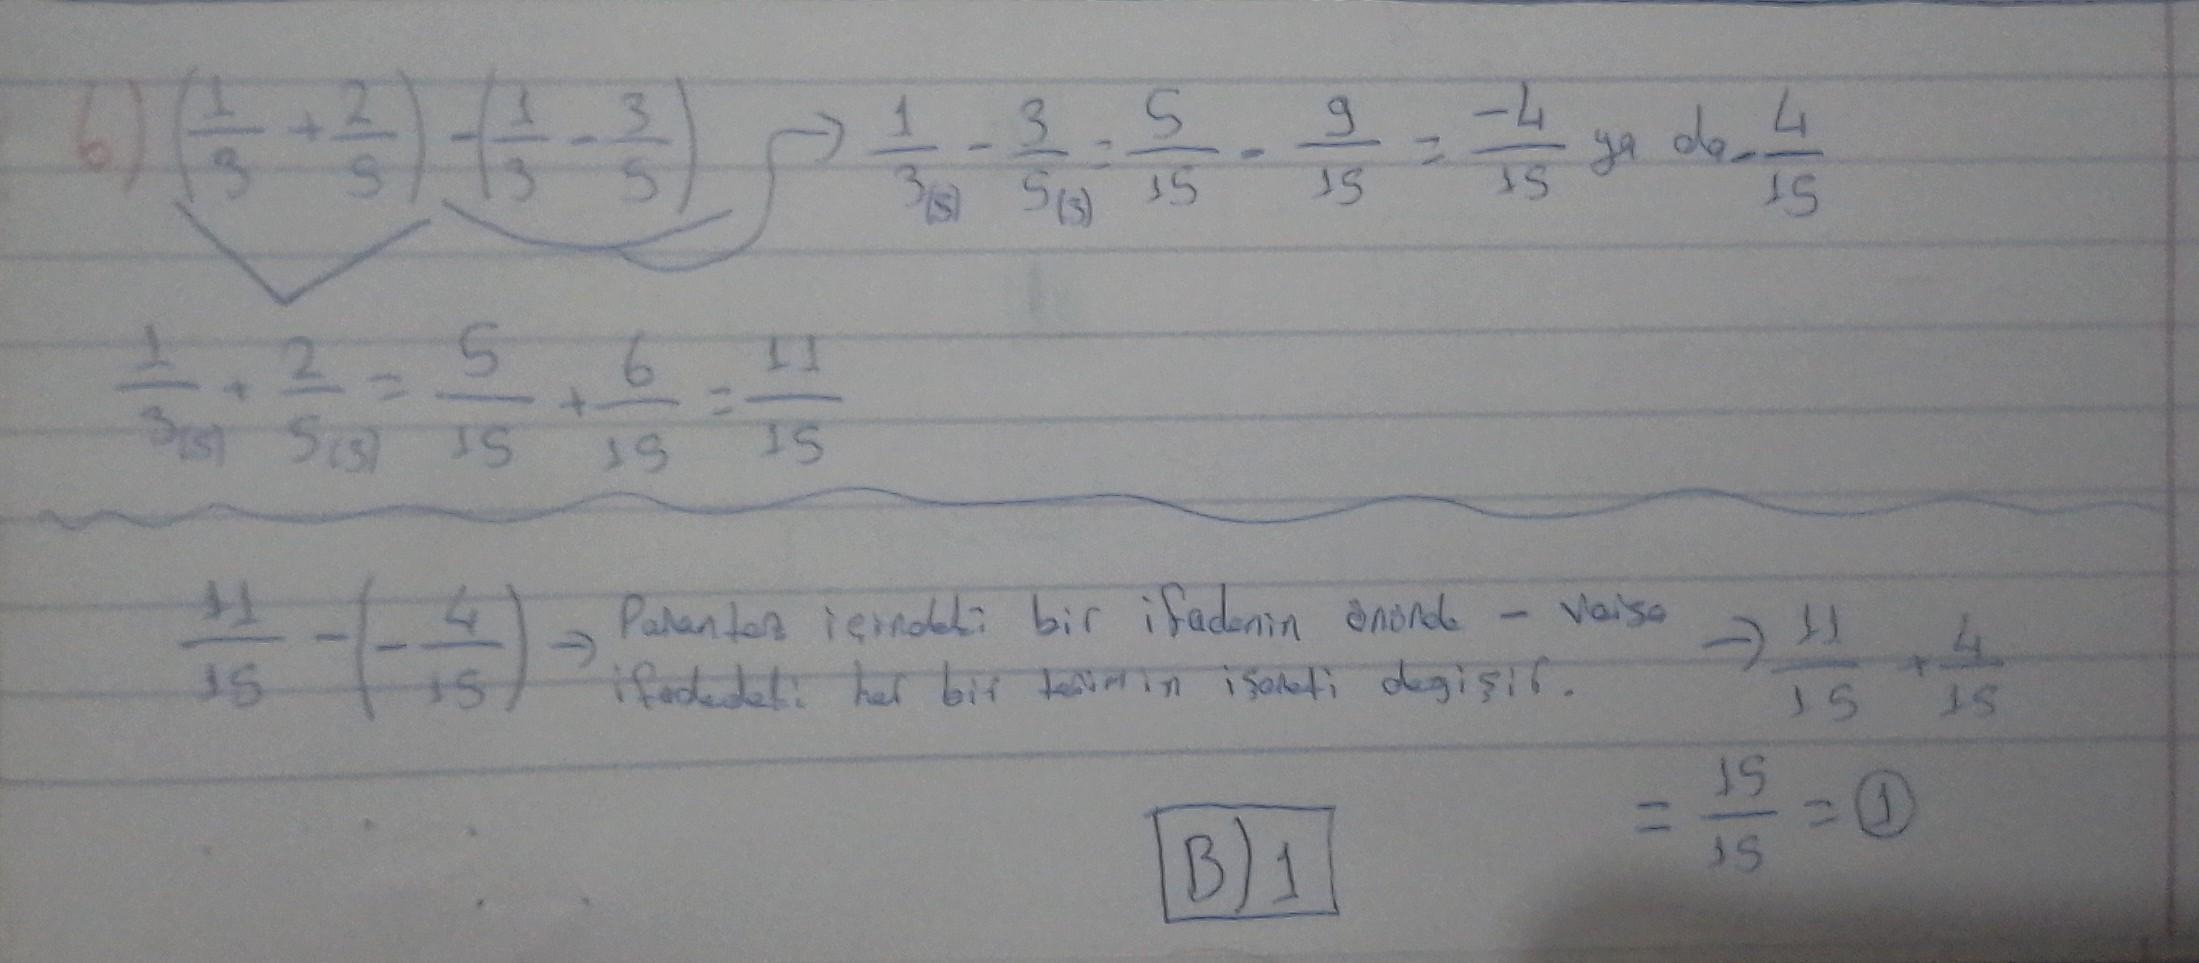 6) (1/3 + 2/5) - (1/3 - 3/5) → 1/3(5) - 3/5(3) = 5/15 - 9/15 = -4/15 ya da - 4/15
1/3(5) + 2/5(3) = 5/15 + 6/15 = 11/15
11/15 - (- 4/15) → Parantez içindeki bir ifadenin önünde - varsa → 11/15 + 4/15
ifadedeki her bir terimin işareti değişir.
= 15/15 = 1
B) 1